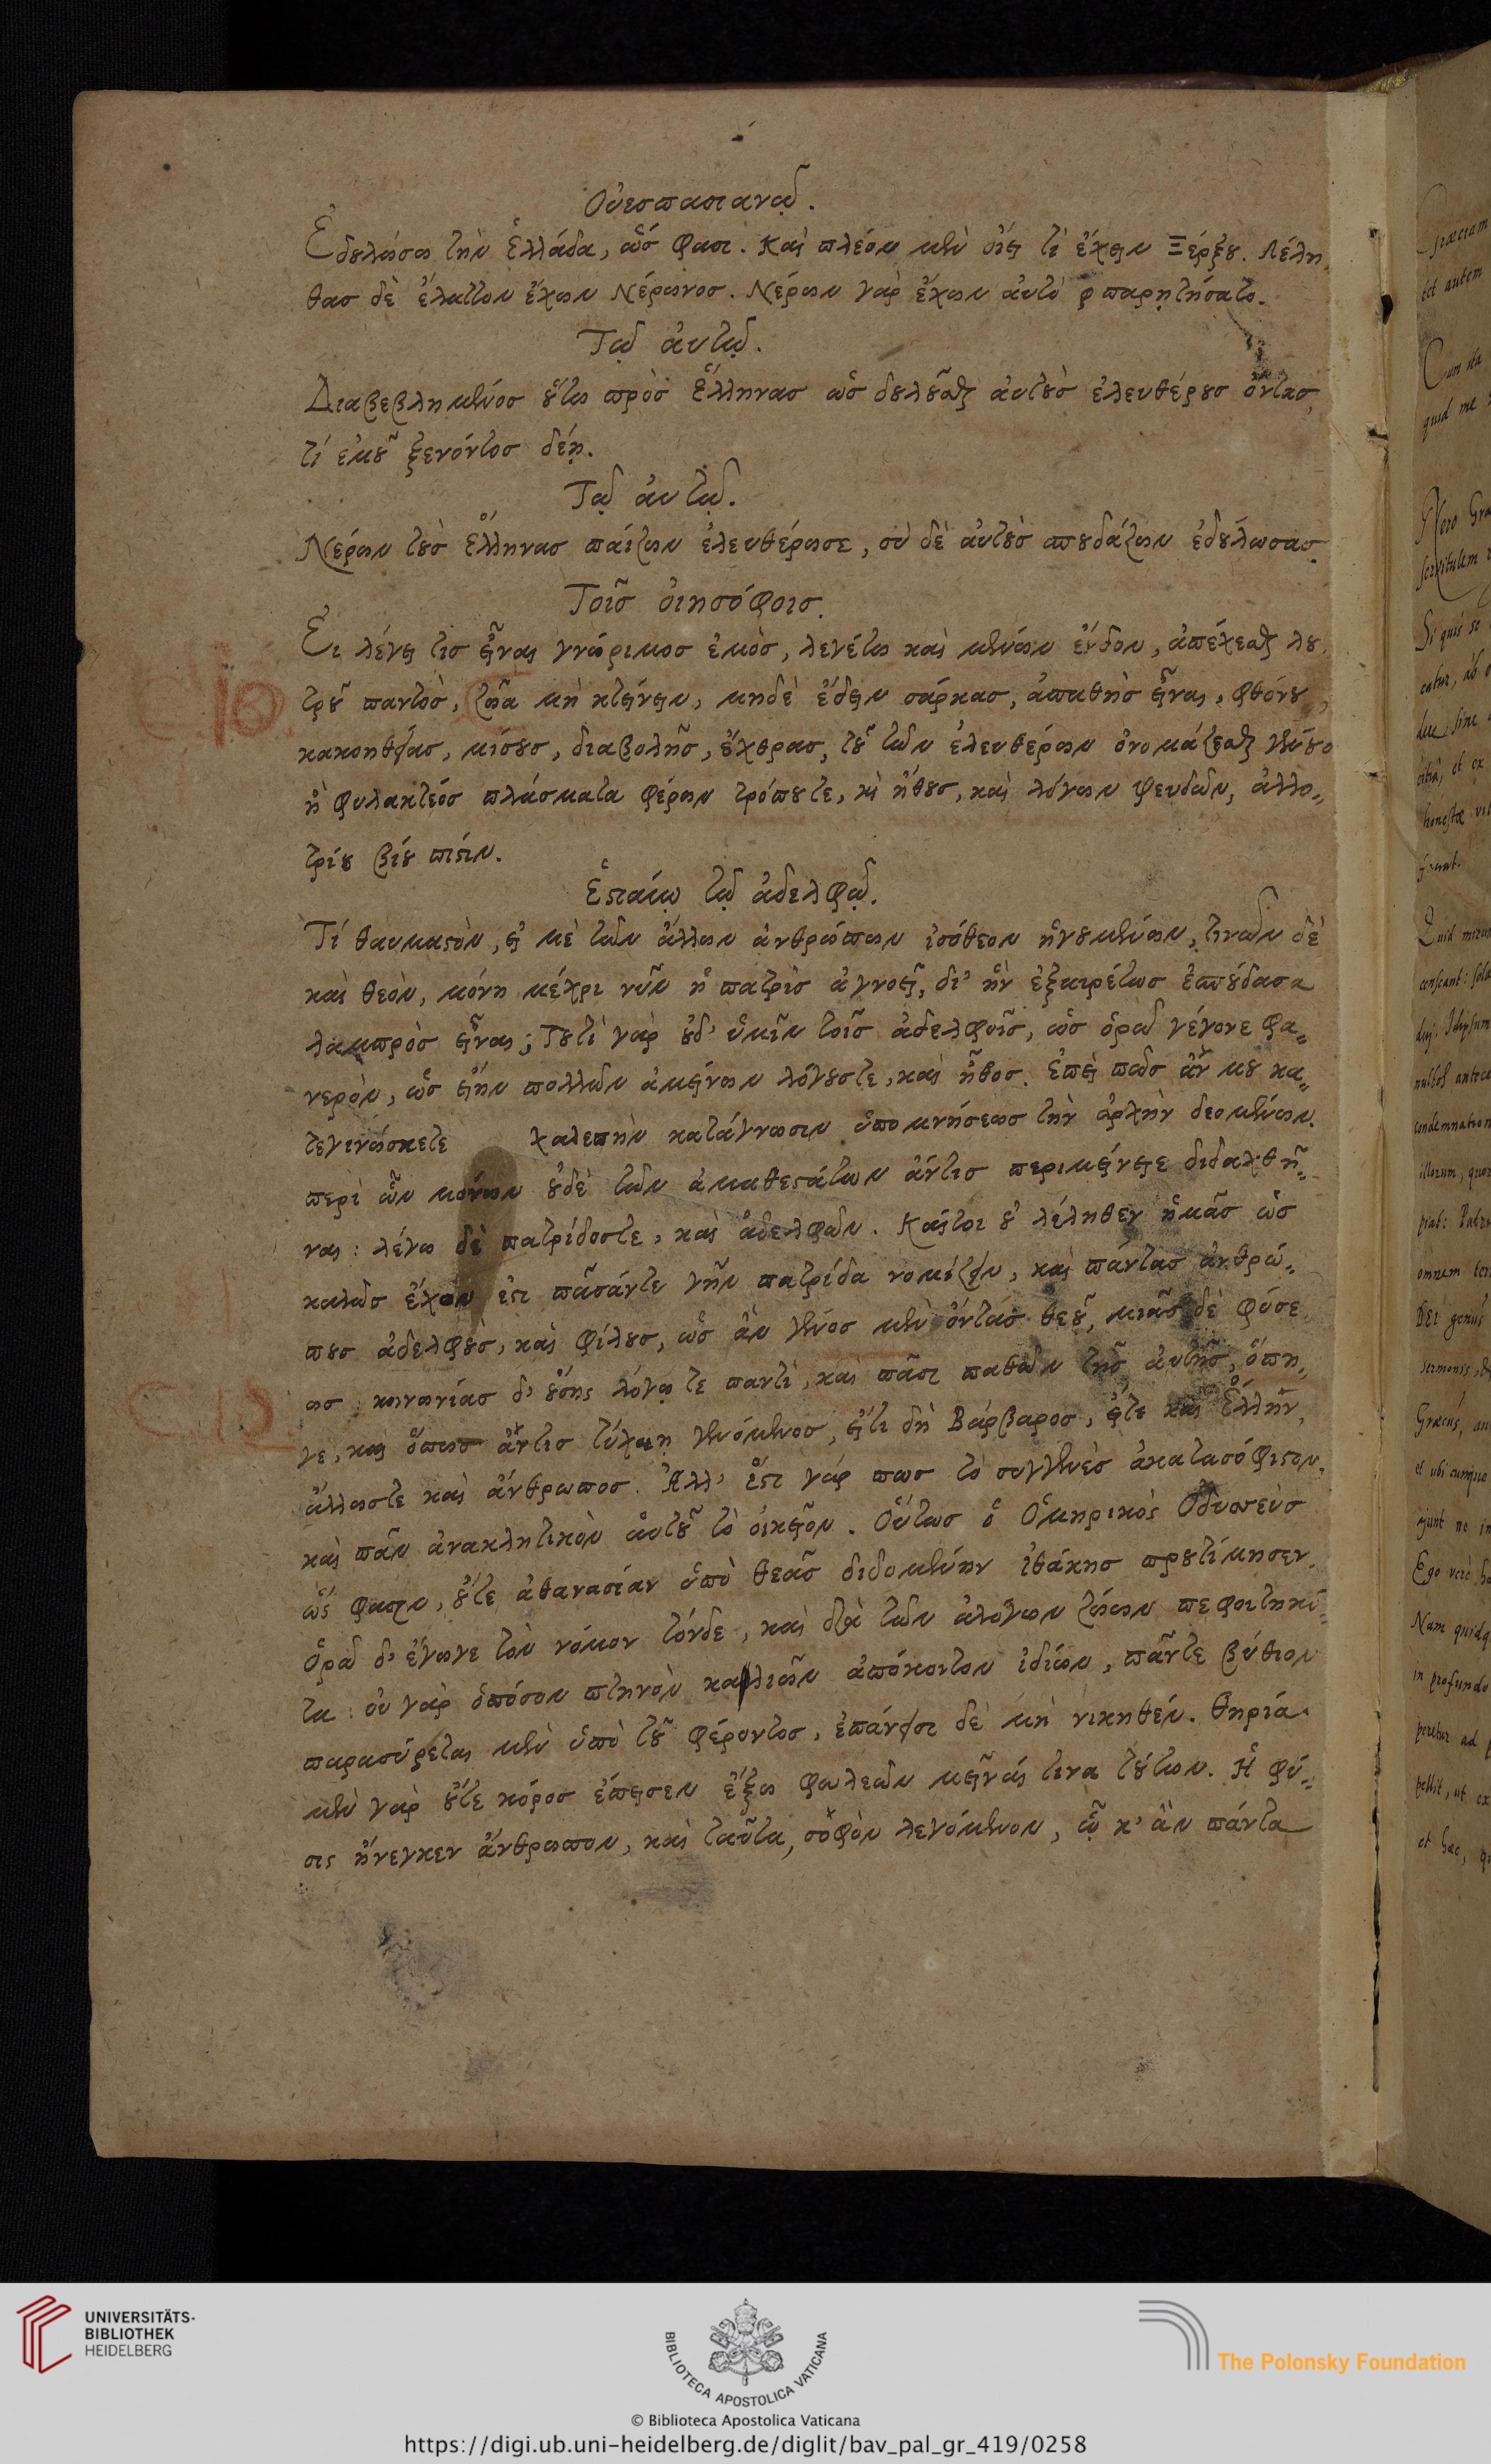 Οὐεσπασιανῷ.
Ἐδουλώσω τὴν Ἑλλάδα, ὥς φασι. καὶ πλέον μὲν οἴει τι ἔχειν Ξέρξου. λέλη
θας δὲ ἔλαττον ἔχων Νέρωνος. Νέρων γὰρ ἔχων αὐτὸ παρῃτήσατο.
Τῷ ἀυτῷ.
Διαβεβλημένος οὕτω πρὸς Ἕλληνας ὡς δουλοῦσθαι ἀυτοὺς ἐλευθέρους ὄντας,
τί ἐμοῦ ξενόντος δέῃ.
Τῷ ἀυτῷ.
Νέρων τοὺς Ἕλληνας παίζων ἐλευθέρωσε, σὺ δὲ ἀυτοὺς σπουδάζων ἐδούλωσας.
Τοῖς οἰησόφοις.
Εἰ λέγει τις εἶναι γνώριμος ἐμὸς, λεγέτω καὶ μένων ἔνδον, ἀπέχεσθαι λου
τροῦ παντὸς, ζῶα μὴ κτείνειν, μηδὲ ἔδειν σάρκας, ἀπαθὴς εἶναι, φθόνου,
κακοηθείας, μίσους, διαβολῆς, ἔχθρας, τοῦ τῶν ἐλευθέρων ὀνομάζεσθαι γένους
ἢ φυλακτέος πλάσματα φέρων τρόπου τε, καὶ ἤθους, καὶ λόγων ψευδῶν, ἀλλο„
τρίου βίου πίσιν.
Ἑστιαίῳ τῷ ἀδελφῷ.
Τί θαυμαστὸν, εἰ μὲ τῶν ἄλλων ἀνθρώπων ἰσόθεον ἡγουμένων, τινῶν δὲ
καὶ θεὸν, μόνη μέχρι νῦν ἡ πατρὶς ἀγνοεῖ, δι' ἣν ἐξαιρέτως ἐσπούδασα
λαμπρὸς εἶναι; Τουτὶ γὰρ οὐδ' ὑμῖν τοῖς ἀδελφοῖς, ὡς ὁρῶ γέγονε φα„
νερὸν, ὡς εἴην πολλῶν ἀμείνων λόγους τε, καὶ ἦθος. ἐπεὶ πῶς ἄν μου κα„
τεγινώσκετε χαλεπὴν κατάγνωσιν ὑπομνήσεως τὴν ἀρχὴν δεομένων.
περὶ ὧν μόνων οὐδὲ τῶν ἀμαθεστάτων ἄν τις περιμείνειε διδαχθῆ„
ναι: λέγω δὲ πατρίδος τε, καὶ ἀδελφῶν. καίτοι οὐ λέληθεν ἡμᾶς ὡς
καλῶς ἔχον ἐστι πᾶσάν τε γῆν πατρίδα νομίζειν, καὶ πάντας ἀνθρώ„
πους ἀδελφοὺς, καὶ φίλους, ὡς ἂν γένος μὲν ὄντας θεοῦ, μιᾶς δὲ φύσε
ως: κοινωνίας δ' οὔσης λόγῳ τε παντὶ, καὶ πᾶσι παθῶν τῆς ἀυτῆς, ὅπη„
γε, καὶ ὅπως ἄν τις τύχῃ γενόμενος, εἴτι δὴ Βάρβαρος, εἴτε καὶ Ἕλλην,
ἄλλως τε καὶ ἄνθρωπος. Ἀλλ' ἔστι γάρ πως τὸ συγγενὲς ἀκατασόφιστον,
καὶ πᾶν ἀνακλητικὸν ἁυτοῦ τὸ οἰκεῖον. Οὕτως ὁ Ὁμηρικὸς Ὀδυσσεὺς
ὥς φασιν, οὔτε ἀθανασίαν ὑπὸ θεᾶς διδομένην ἰθάκης προυτίμησεν.
Ὁρῶ δ' ἔγωγε τὸν νόμον τόνδε, καὶ διὰ τῶν ἀλόγων ζώων πεφοιτηκό„
τα: οὐ γὰρ ὁπόσον πτηνὸν καλιῶν ἀπόκοιτον ἰδίων, πᾶν τε βύθιον
παρασύρεται μὲν ὑπὸ τοῦ φέροντος, ἐπάνεισι δὲ μὴ νικηθέν. θηρία
μὲν γὰρ οὔτε κόρος ἔπεισεν ἔξω φωλεῶν μεῖναί τινα τούτων. ἡ φύ„
σις ἤνεγκεν ἄνθρωπον, καὶ ταῦτα, σοφὸν λεγόμενον, ᾧ κ' ἂν πάντα
C. 10
C. 12
UNIVERSITÄTS-
BIBLIOTHEK
HEIDELBERG
BIBLIOTECA APOSTOLICA VATICANA
The Polonsky Foundation
© Biblioteca Apostolica Vaticana
https://digi.ub.uni-heidelberg.de/diglit/bav_pal_gr_419/0258